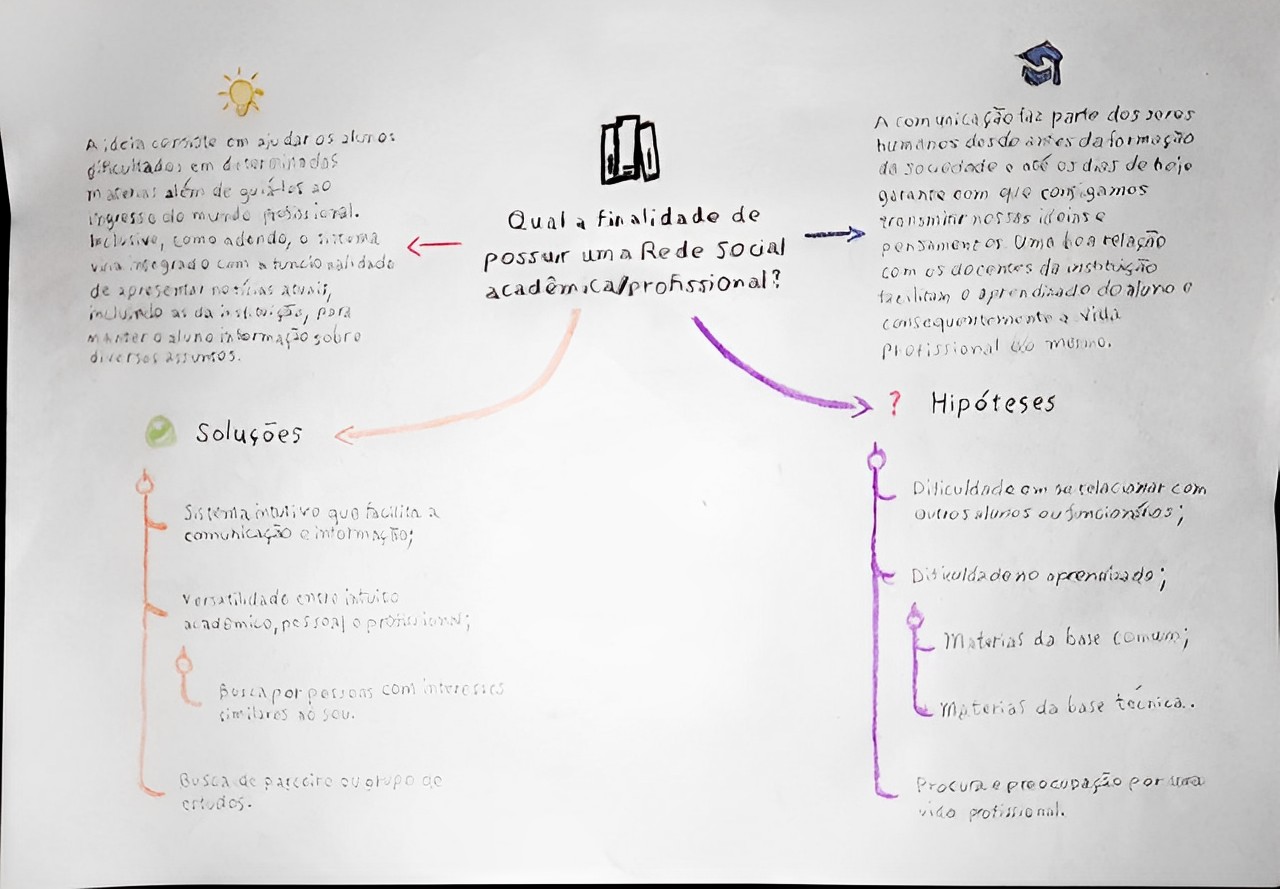 Qual a finalidade de
possuir uma Rede Social
acadêmica/profissional?
A ideia consiste em ajudar os alunos
dificultados em determinadas
materias além de guiá-los ao
ingresso do mundo profissional.
Inclusive, como adendo, o sistema
viria integrado com a funcionalidade
de apresentar notícias atuais,
incluindo as da instituição, para
manter o aluno informação sobre
diversos assuntos.
A comunicação faz parte dos seres
humanos desde antes da formação
da sociedade e até os dias de hoje
garante com que consigamos
transmitir nossas ideias e
pensamentos. Uma boa relação
com os docentes da instituição
facilitam o aprendizado do aluno e
consequentemente a vida
profissional do mesmo.
Soluções
Sistema intuitivo que facilita a
comunicação e informação;
Versatilidade entre intuito
acadêmico, pessoal e profissional;
Busca por pessoas com interesses
similares ao seu.
Busca de parceiro ou grupo de
estudos.
? Hipóteses
Dificuldade em se relacionar com
outros alunos ou funcionários;
Dificuldade no aprendizado;
Materias da base comum;
Materias da base técnica..
Procura e preocupação por uma
vida profissional.